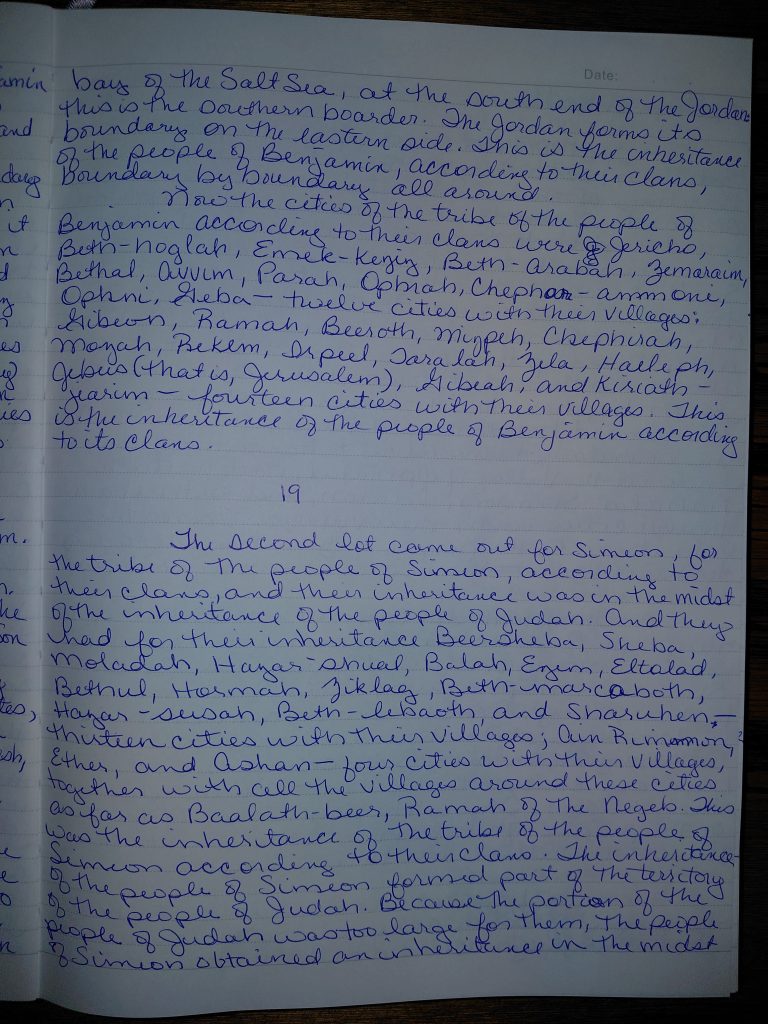 Date:
bay of the Salt Sea, at the south end of the Jordan
this is the southern boarder. The Jordan forms its
boundary on the eastern side. This is the inheritance
of the people of Benjamin, according to their clans,
boundary by boundary all around.
Now the cities of the tribe of the people of
Benjamin according to their clans were Jericho,
Beth-hoglah, Emek-keziz, Beth-arabah, Zemaraim,
Bethal, Avvim, Parah, Ophrah, Chephar-ammoni,
Ophni, Geba - twelve cities with their villages:
Gibeon, Ramah, Beeroth, Mizpeh, Chephirah,
Mozah, Rekem, Irpeel, Taralah, Zela, Haeleph,
Jebus (that is, Jerusalem), Gibeah, and Kiriath-
jearim - fourteen cities with their villages. This
is the inheritance of the people of Benjamin according
to its clans.
19
The second lot came out for Simeon, for
the tribe of the people of Simeon, according to
their clans, and their inheritance was in the midst
of the inheritance of the people of Judah. And they
had for their inheritance Beersheba, Sheba,
Moladah, Hazar-shual, Balah, Ezem, Eltalad,
Bethul, Hormah, Ziklag, Beth-marcaboth,
Hazar-susah, Beth-lebaoth, and Sharuhen, -
thirteen cities with their villages; Ain Rimmon,
Ether, and Ashan - four cities with their villages,
together with all the villages around these cities
as far as Baalath-beer, Ramah of the Negeb. This
was the inheritance of the tribe of the people of
Simeon according to their clans. The inheritance
of the people of Simeon formed part of the territory
of the people of Judah. Because the portion of the
people of Judah was too large for them, the people
of Simeon obtained an inheritance in the midst